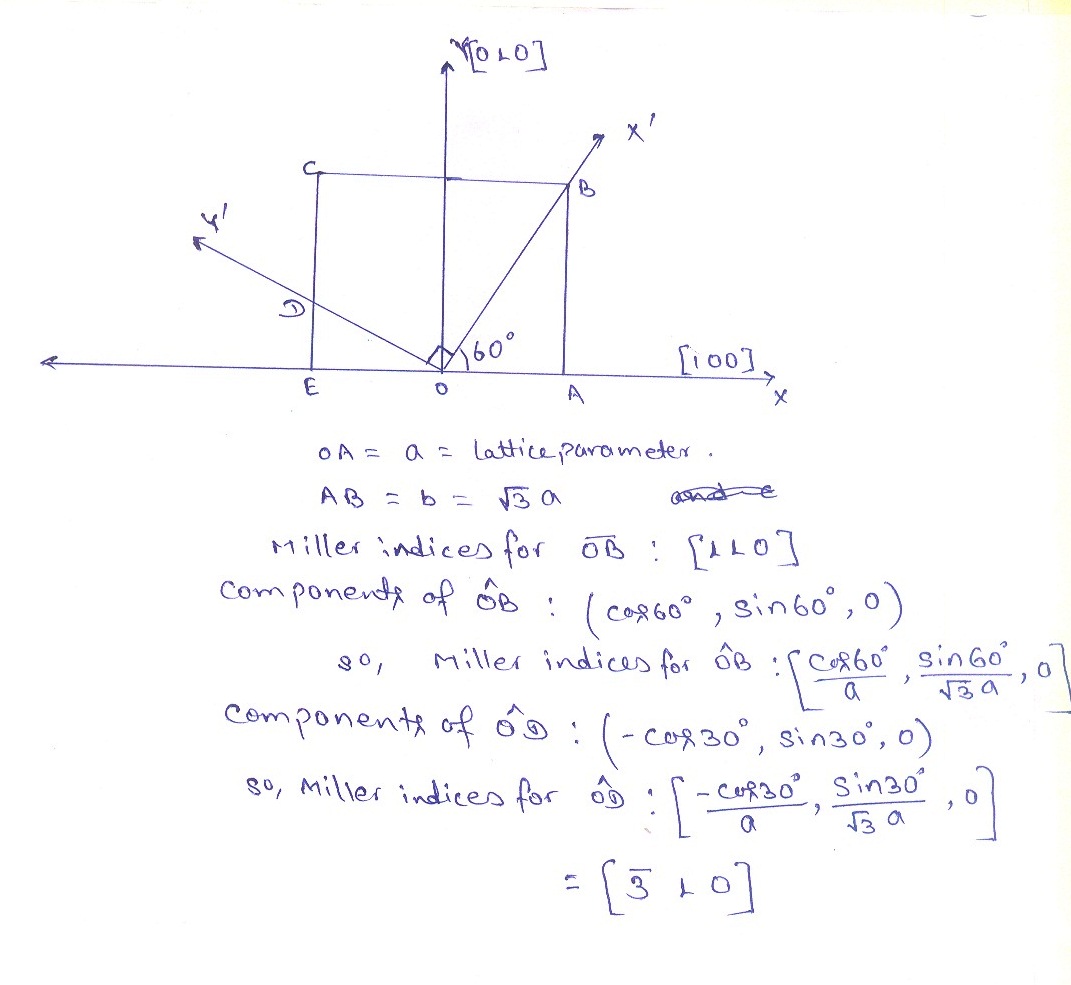 Y[010]
X'
C
B
Y'
D
60°
[100]
E
O
A
X
OA = a = lattice parameter.
AB = b = √3 a
Miller indices for O̅B̅ : [110]
Components of ÔB : (cos60°, sin60°, 0)
so, Miller indices for ÔB : [cos60°/a, sin60°/√3a, 0]
Components of ÔD : (-cos30°, sin30°, 0)
so, Miller indices for ÔD : [-cos30°/a, sin30°/√3 a, 0]
= [3̅ 1 0]